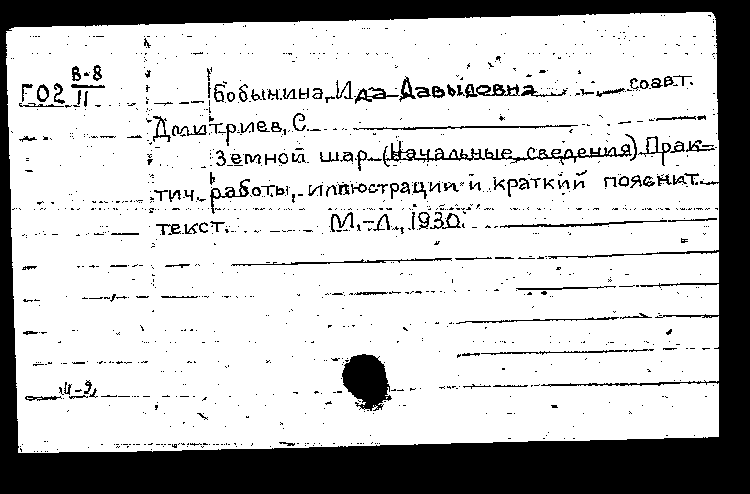 В-8
Г02 II
Бобынина, Ида Давыдовна, соавт.
Дмитриев, С
Земной шар (Начальные сведения) Прак-
тич. работы, иллюстрации и краткий пояснит.
текст. М.-Л., 1930.